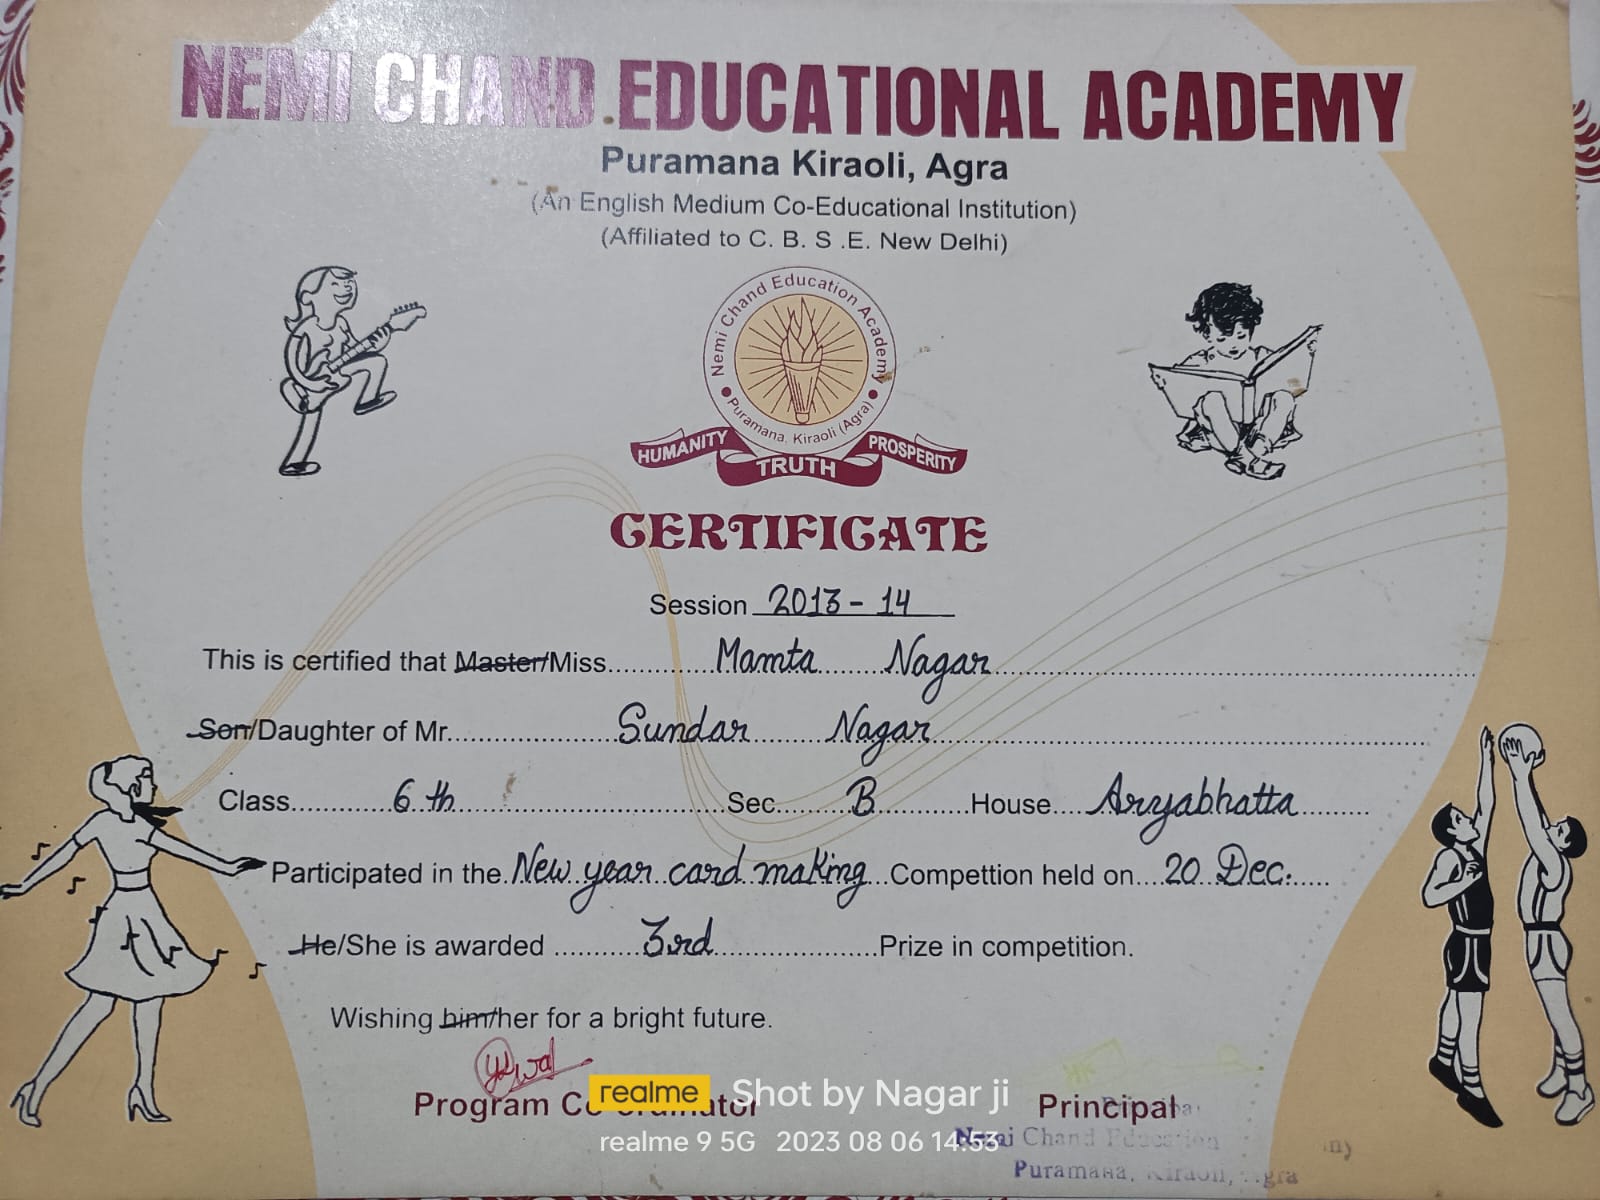 NEMI CHAND EDUCATIONAL ACADEMY
Puramana Kiraoli, Agra
(An English Medium Co-Educational Institution)
(Affiliated to C. B. S .E. New Delhi)
Nemi Chand Education Academy
Puramana, Kiraoli (Agra)
HUMANITY TRUTH PROSPERITY
CERTIFICATE
Session 2013 - 14
This is certified that Master/Miss Mamta Nagar
Son/Daughter of Mr. Sundar Nagar
Class 6 th Sec B House Aryabhatta
Participated in the New year card making Compettion held on 20 Dec.
He/She is awarded 3rd Prize in competition.
Wishing him/her for a bright future.
Program Co-ordinator Principal
realme Shot by Nagar ji
realme 9 5G 2023 08 06 14:53
Chand Education
Puramana, Kiraoli,